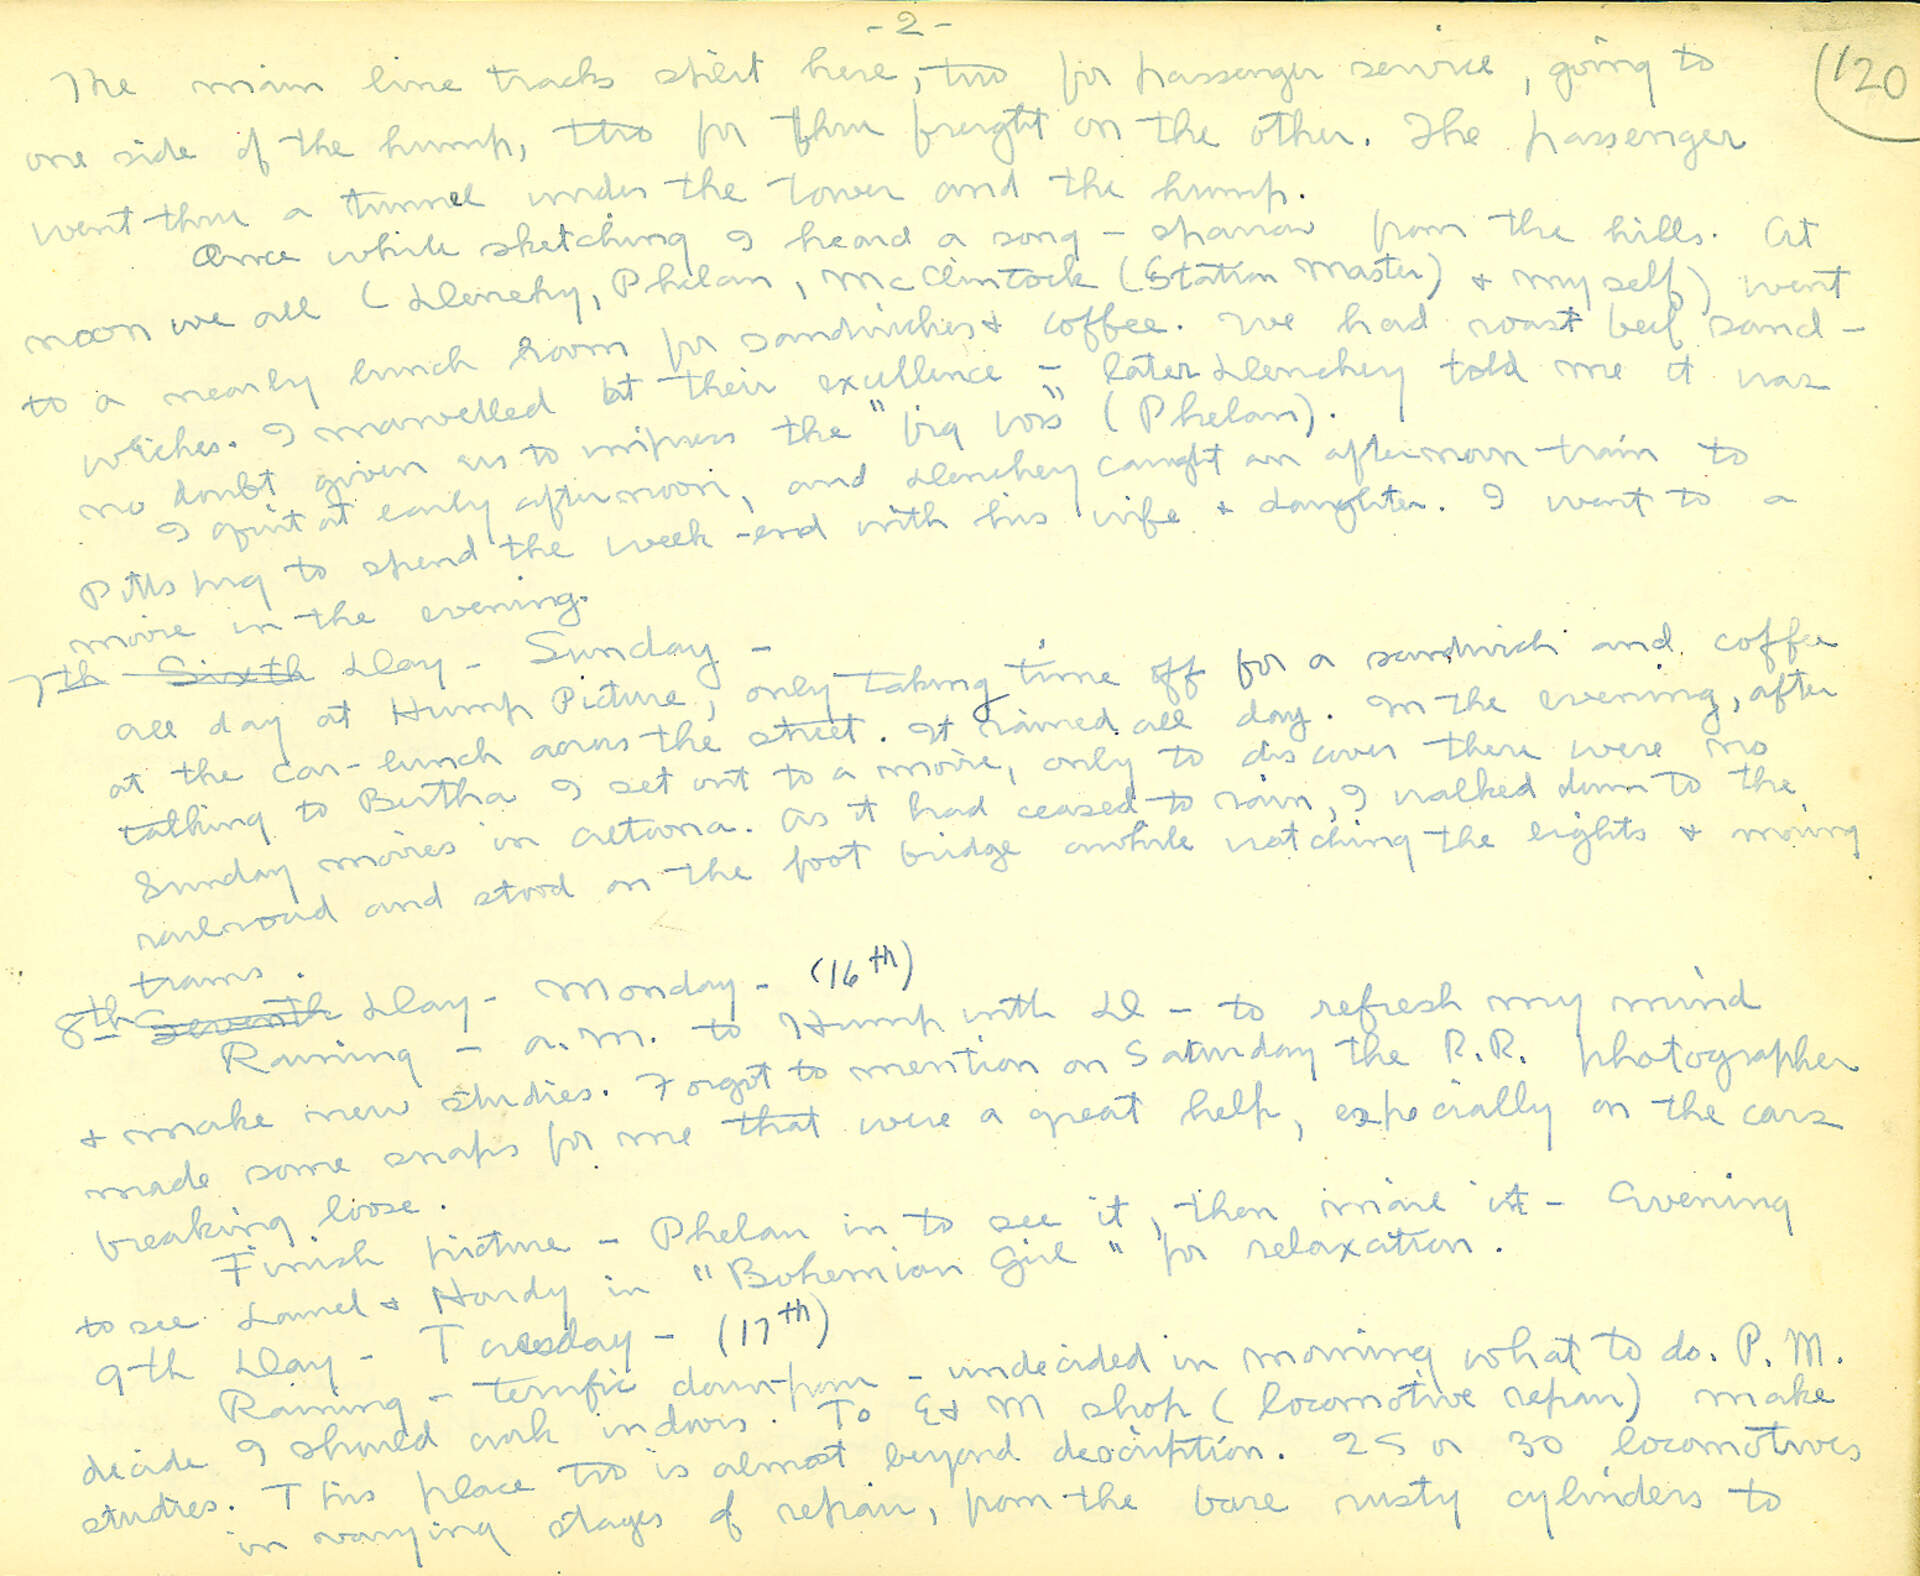 - 2 -
120
The main line tracks split here, two for passenger service, going to
one side of the hump, two for thru freight on the other. The passenger
went thru a tunnel under the tower and the hump.
Once while sketching I heard a song-sparrow from the hills. At
noon we all (Denchy, Phelan, McClintock (Station Master) & myself) went
to a nearby lunch room for sandwiches & coffee. We had roast beef sand-
wiches. I marvelled at their excellence - later Denchey told me it was
no doubt given us to impress the "big boss" (Phelan).
I quit at early afternoon, and Denchey caught an afternoon train to
Pittsburg to spend the week-end with his wife & daughter. I went to a
movie in the evening.
7th Sixth Day - Sunday -
All day at Hump Picture, only taking time off for a sandwich and coffee
at the car-lunch across the street. It rained all day. In the evening, after
talking to Bertha I set out to a movie, only to discover there were no
Sunday movies in Altoona. As it had ceased to rain, I walked down to the
railroad and stood on the foot bridge awhile watching the lights & moving
trains.
8th Seventh Day - Monday - (16th)
Raining - A.M. to Hump with D - to refresh my mind
& make new studies. Forgot to mention on Saturday the R.R. photographer
made some snaps for me that were a great help, expecially on the cars
breaking loose.
Finish picture - Phelan in to see it, then more it - Evening
to see Laurel & Hardy in "Bohemian Girl" for relaxation.
9th Day - Tuesday - (17th)
Raining - terrific down-pour - undecided in morning what to do. P.M.
decide I should work indoors. To E & M shop (locomotive repair) make
studies. This place too is almost beyond description. 25 or 30 locomotives
in varying stages of repair, from the bare rusty cylinders to